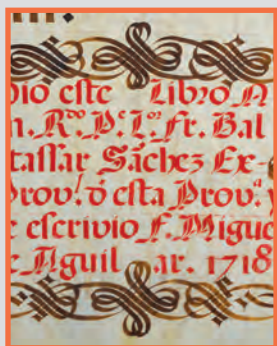 dio este Libro N
n. R.º P.ᵉ L.ºr Fr. Bal
tassar Sáchez Ex-
Prov.l ð esta Prov.ª y
e escrivio F. Migue
Aguil ar. 1718